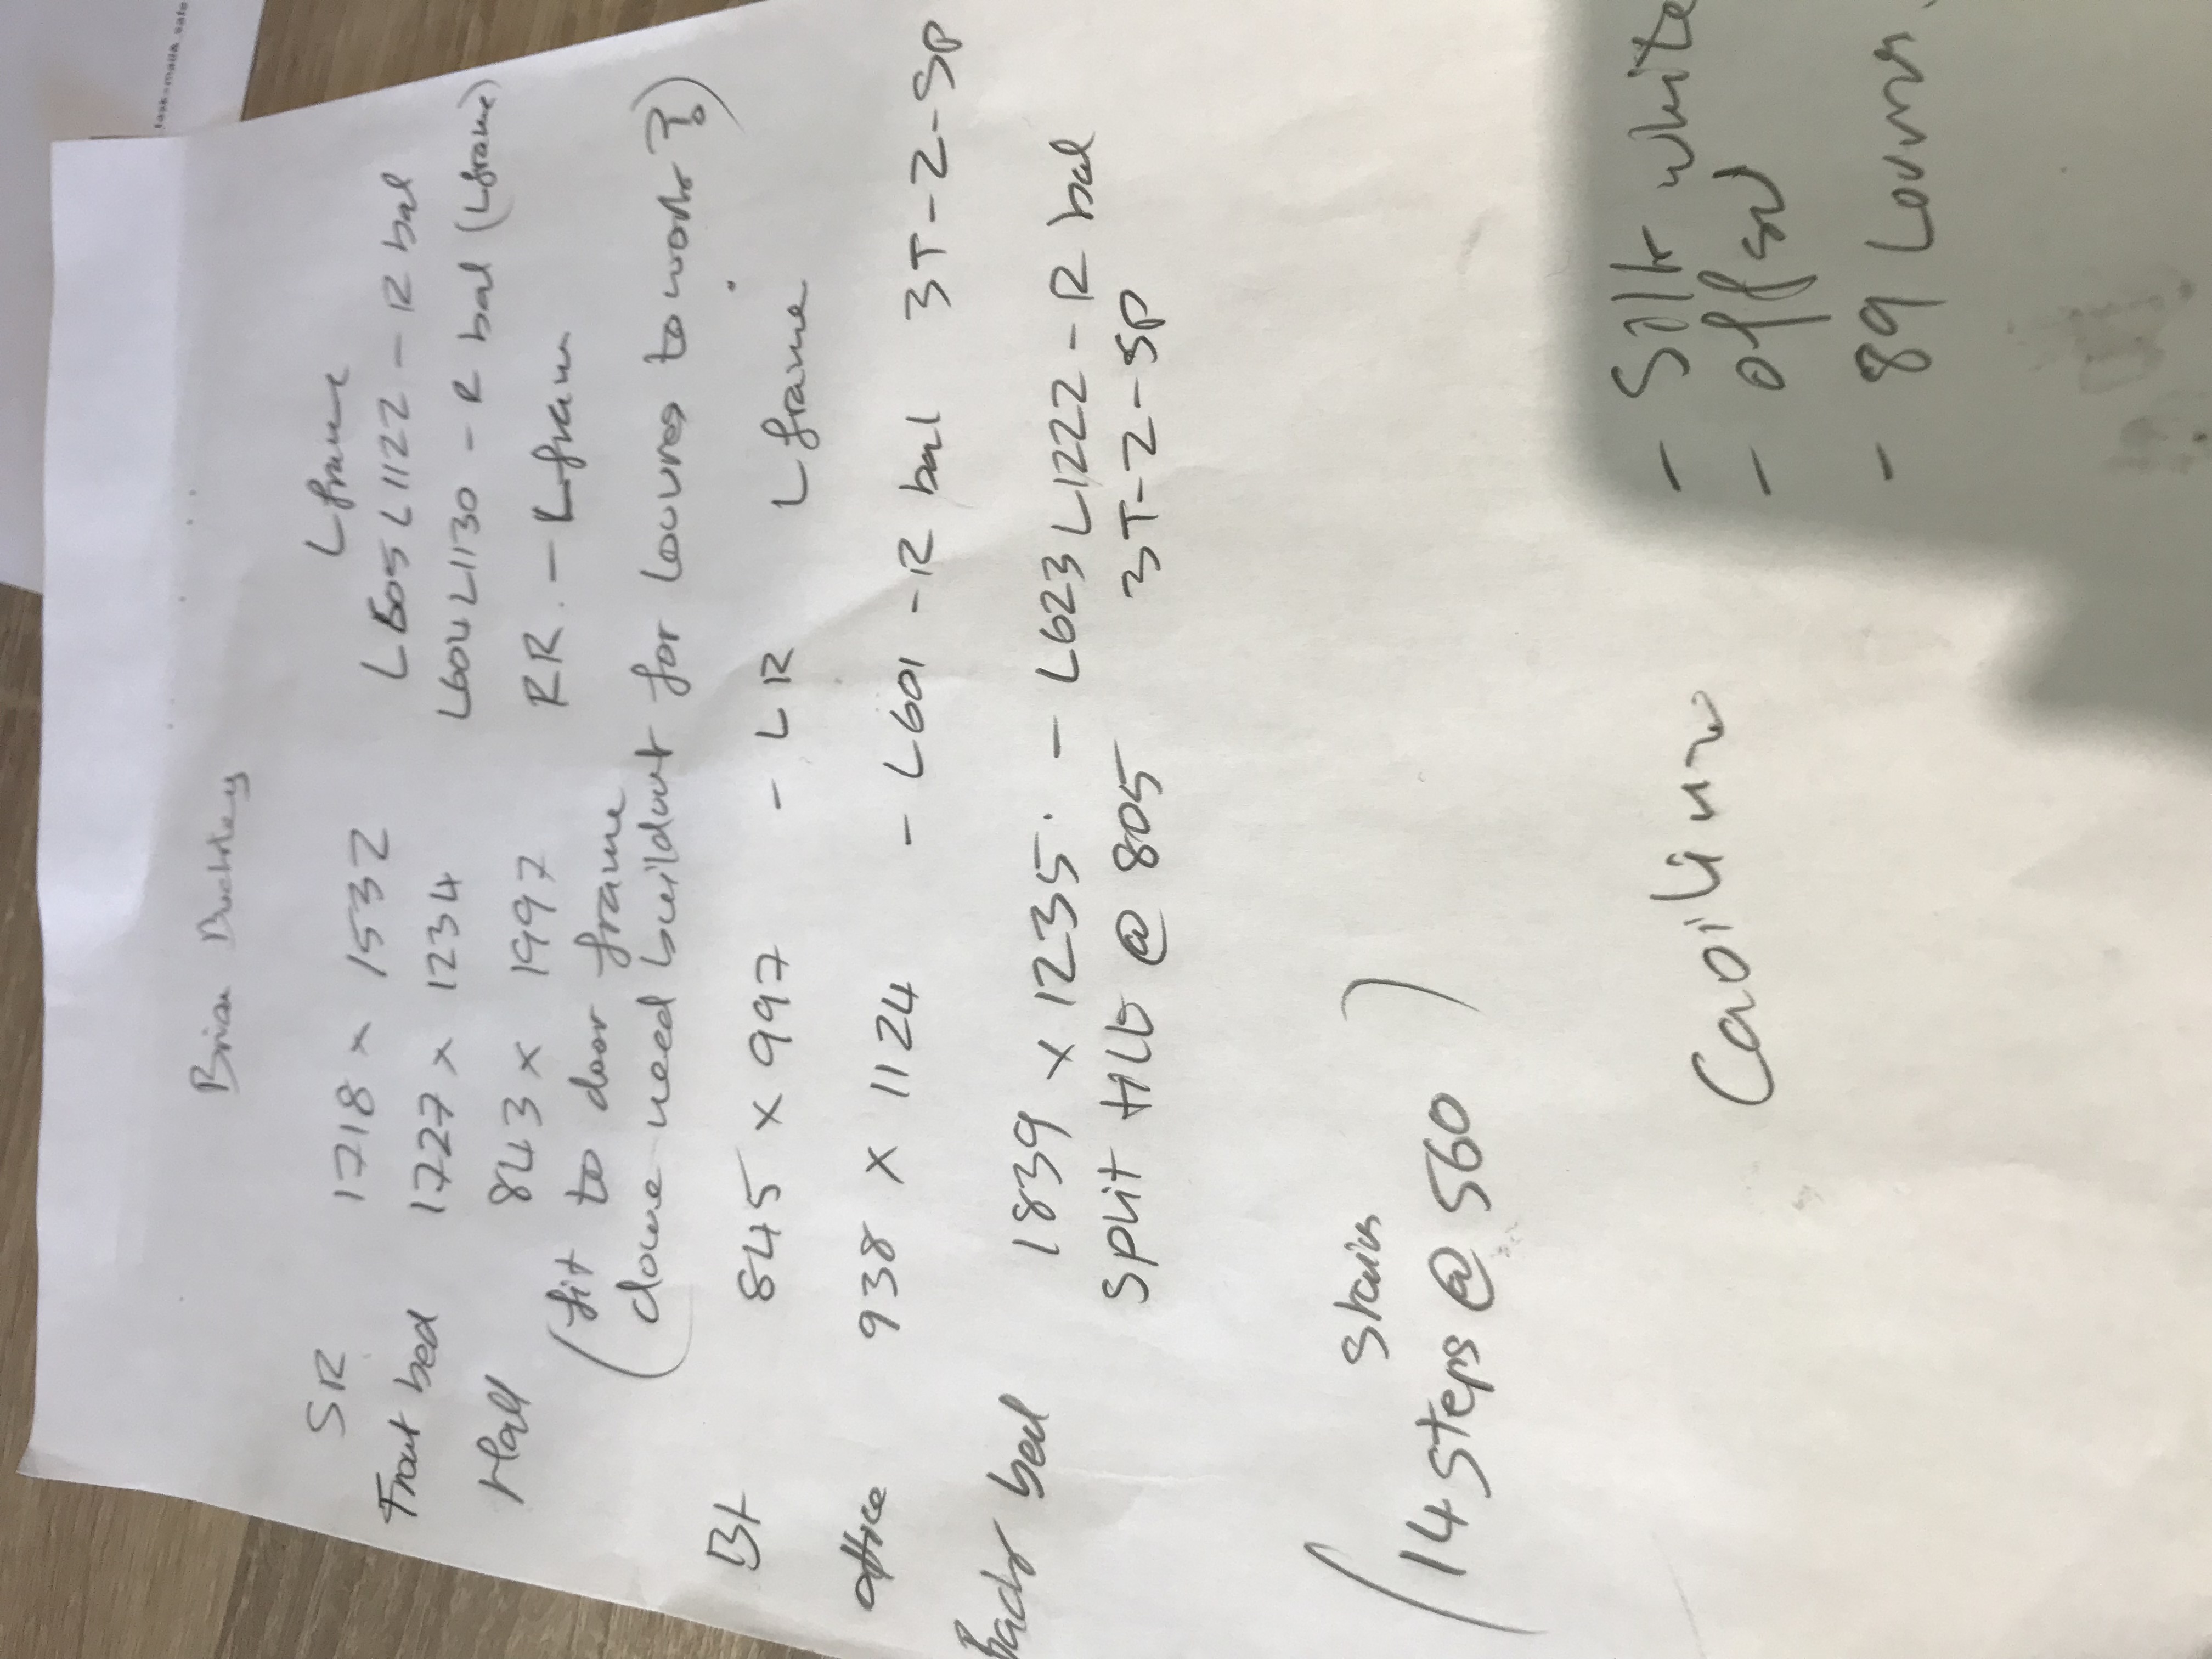 Brian
SR 1718 x 1532 L frame
L605 L1122 - R bal
Front bed 1727 x 1234 L604 L1130 - R bal (L frame)
Hall 843 x 1997 RR. - L fram
(fit to door frame
(dowe need buildout for Louvres to work?)
Bt 845 x 997 - LR L frame
office 938 x 1124 - L601 - R bal 3T-Z-SP
Back bed 1839 x 1235. - L623 L1222 - R bal
split tilt @ 805 3T-Z-SP
(Stairs
14 steps @ 560)
- Silk white
- off sw
- 89 Louvres